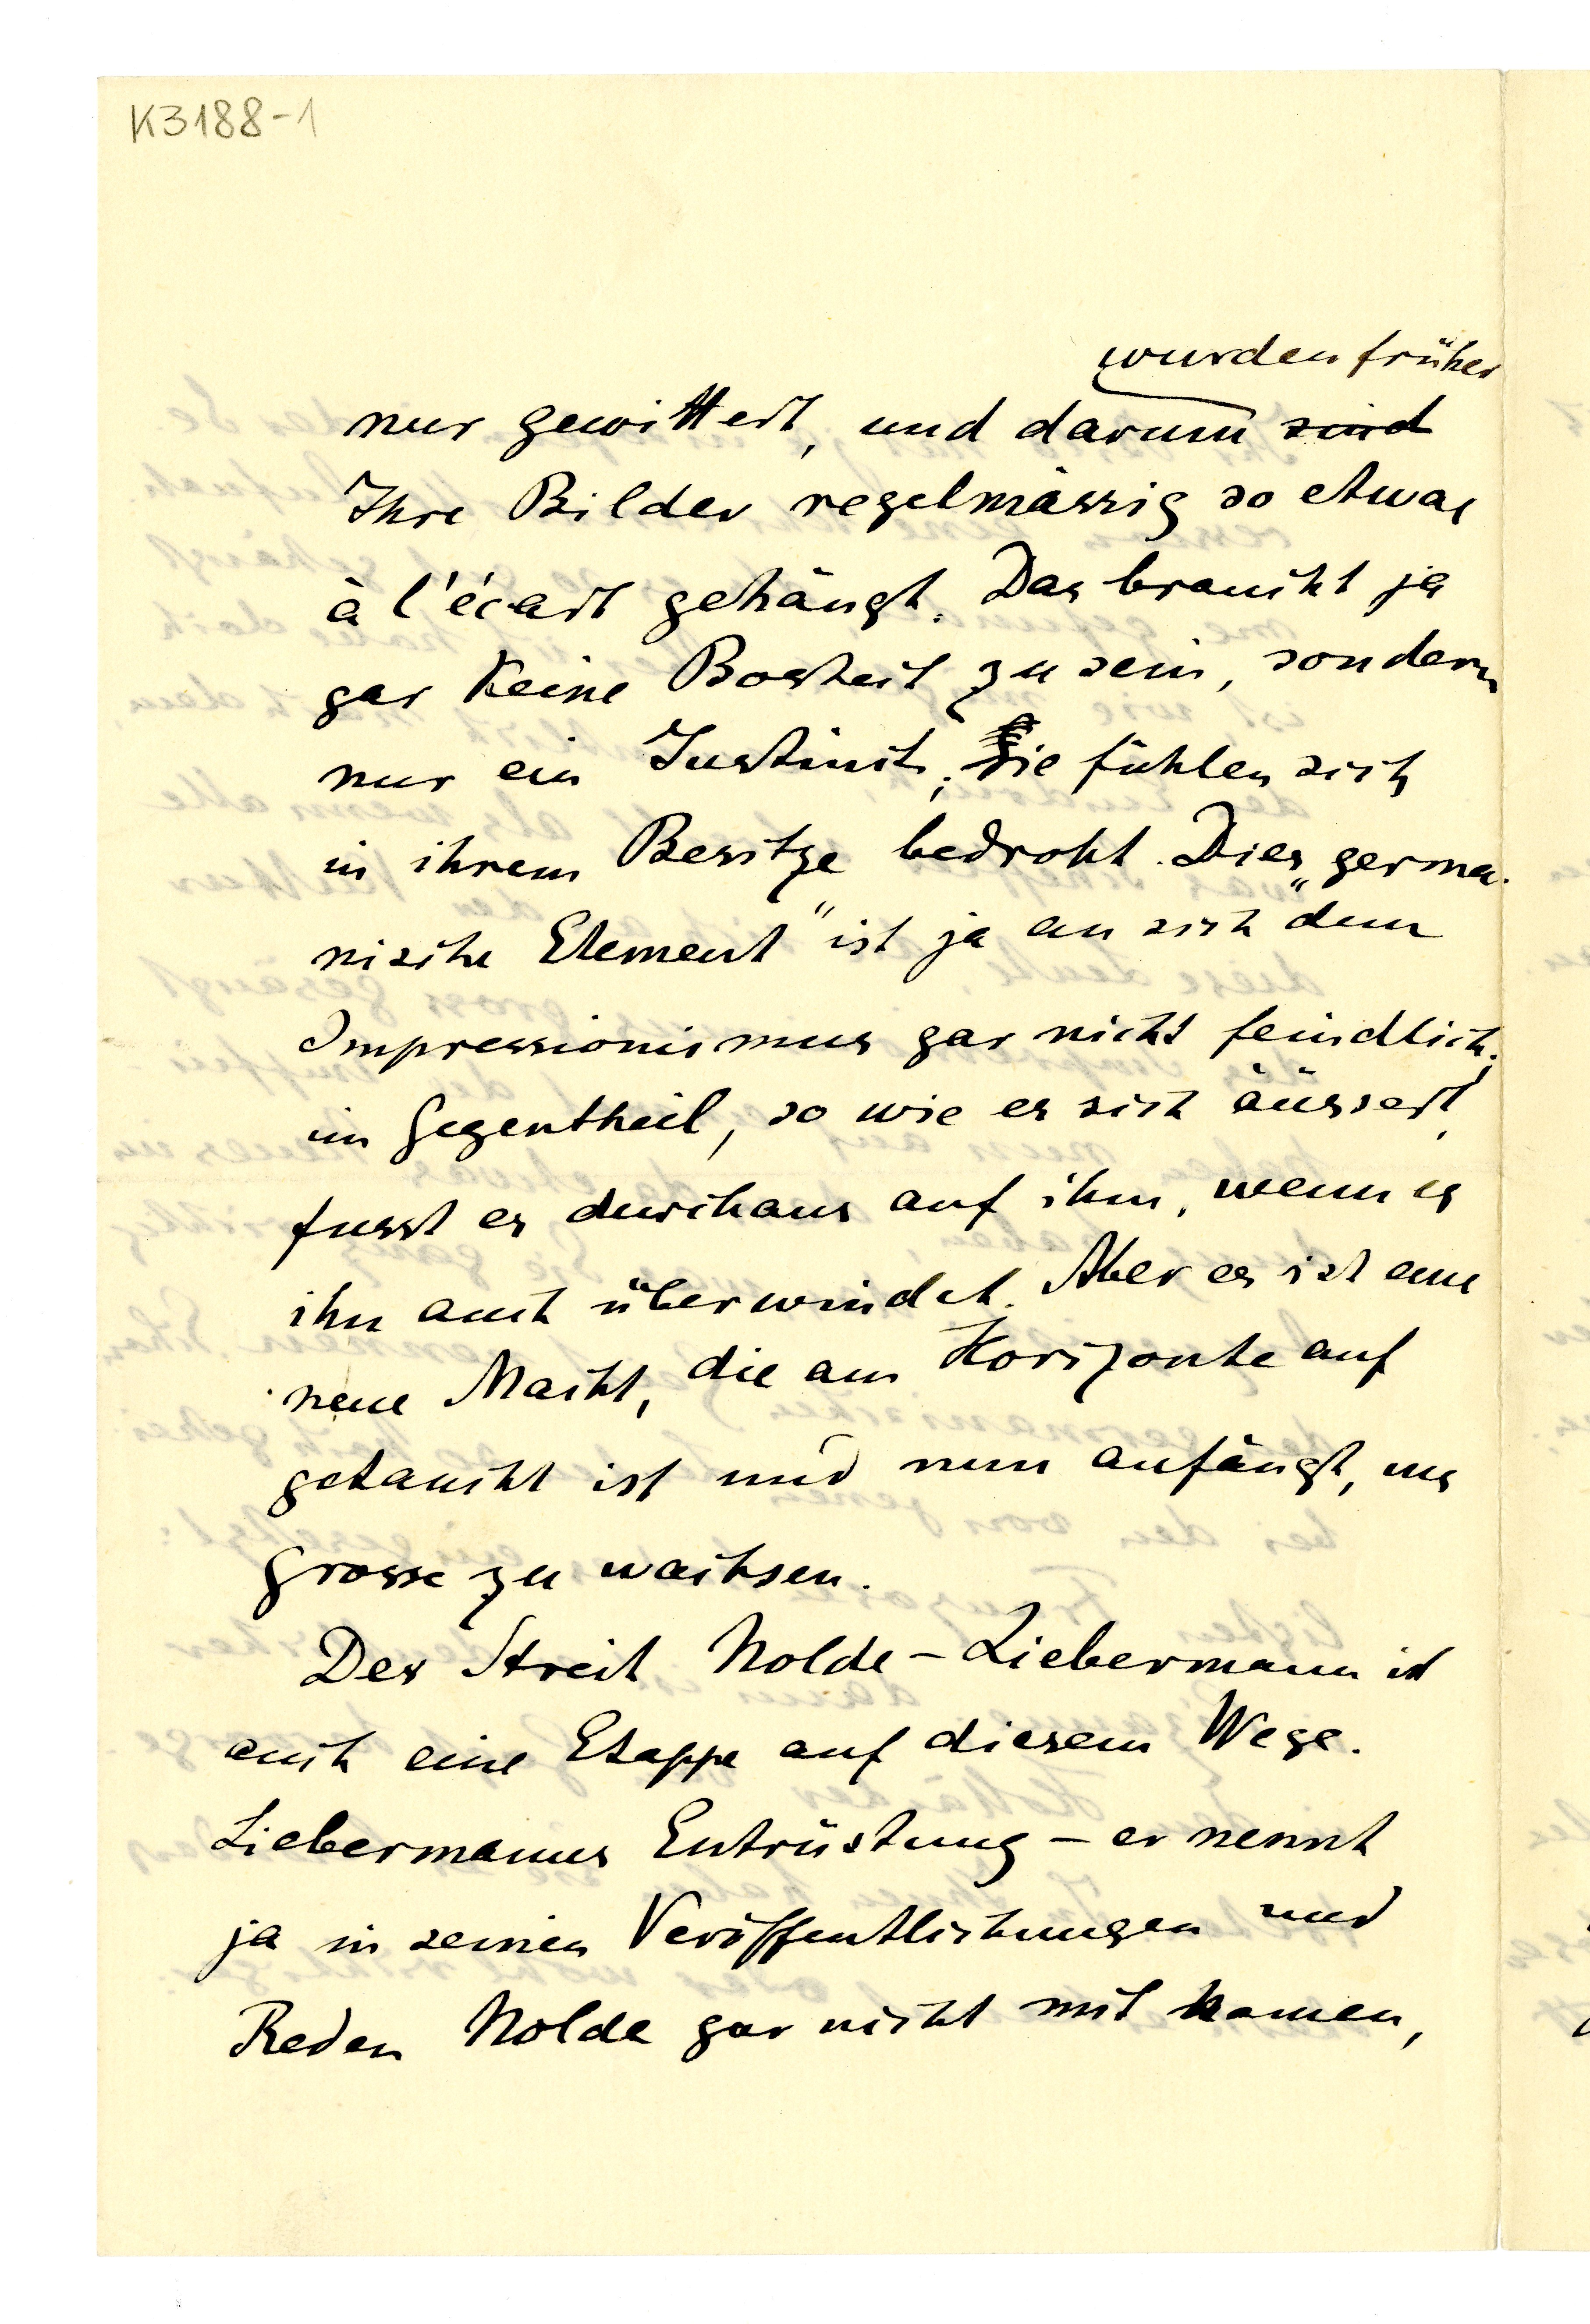 K3188-1
wurden früher
nur gewittert, und darum sind
Ihre Bilder regelmässig so etwas
à l'écart gehängt. Das braucht ja
gar keine Bosheit zu sein, sondern
nur ein Instinct; sie fühlen sich
in ihrem Besitze bedroht. Dies „germa-
nische Element" ist ja an sich dem
Impressionismus gar nicht feindlich;
im Gegentheil, so wie es sich äussert,
fusst es durchaus auf ihm, wenn es
ihn auch überwindet. Aber es ist eine
neue Macht, die am Horizonte auf
getaucht ist und nun anfängt, ins
grosse zu wachsen.
Der Streit Nolde-Liebermann ist
auch eine Etappe auf diesem Wege.
Liebermanns Entrüstung – er nennt
ja in seinen Veröffentlichungen und
Reden Nolde gar nicht mit Namen,